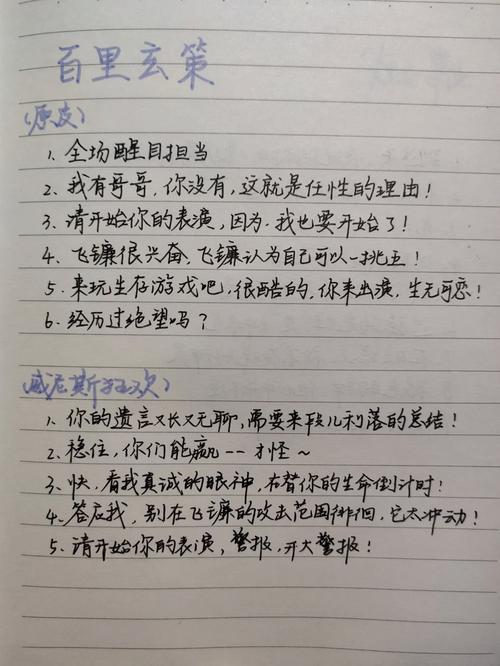 百里玄策
(原皮)
1、全场醒目担当
2、我有哥哥，你没有，这就是任性的理由！
3、请开始你的表演，因为，我也要开始了！
4、飞镰很兴奋，飞镰认为自己可以一挑五！
5、来玩生存游戏吧，很酷的，你来出演，生无可恋！
6、经历过绝望吗？
(威尼斯狂欢)
1、你的遗言又长又无聊，需要来段儿利落的总结！
2、稳住，你们能赢--才怪～
3、快，看我真诚的眼神，在替你的生命倒计时！
4、答应我，别在飞镰的攻击范围徘徊，它太冲动！
5、请开始你的表演，警报，开大警报！